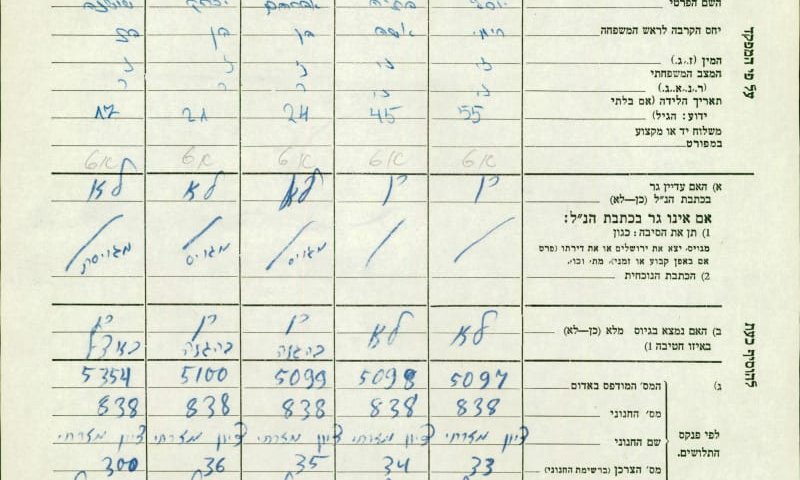 השם הפרטי אברהם שושנה
יחס הקרבה לראש המשפחה אשה בן בן בת
המין (ז.,נ.) נ ז
המצב המשפחתי
(ר.,נ.,א.,ג.) ר ר
על פי המפקד
תאריך הלידה (אם בלתי
ידוע: הגיל) 55 45 24 21 17
משלוח יד או מקצוע
במפורט
א) האם עדיין גר
בכתבת הנ"ל (כן—לא) כן כן לא לא לא
אם אינו גר בכתבת הנ"ל:
1) תן את הסיבה: כגון
מגוייס, יצא את ירושלים או את דירתו (פרס
אם באפן קבוע או זמני), מת, וכו׳. מגויס מגויס מגויסת
2) הכתבת הנוכחית
ב) האם נמצא בגיוס מלא (כן—לא) לא לא כן כן כן
באיזו חטיבה ז) בהגנה בהגנה באצ"ל
להוסיף כעת
ג) המס׳ המודפס באדום 5097 5098 5099 5100 5354
לפי פנקס התלושים.
מס׳ החנוני 838 838 838 838 838
שם החנוני ציון מזרחי ציון מזרחי ציון מזרחי ציון מזרחי ציון מזרחי
מס׳ הצרכן (ברשימת החנוני) 33 34 35 36 300